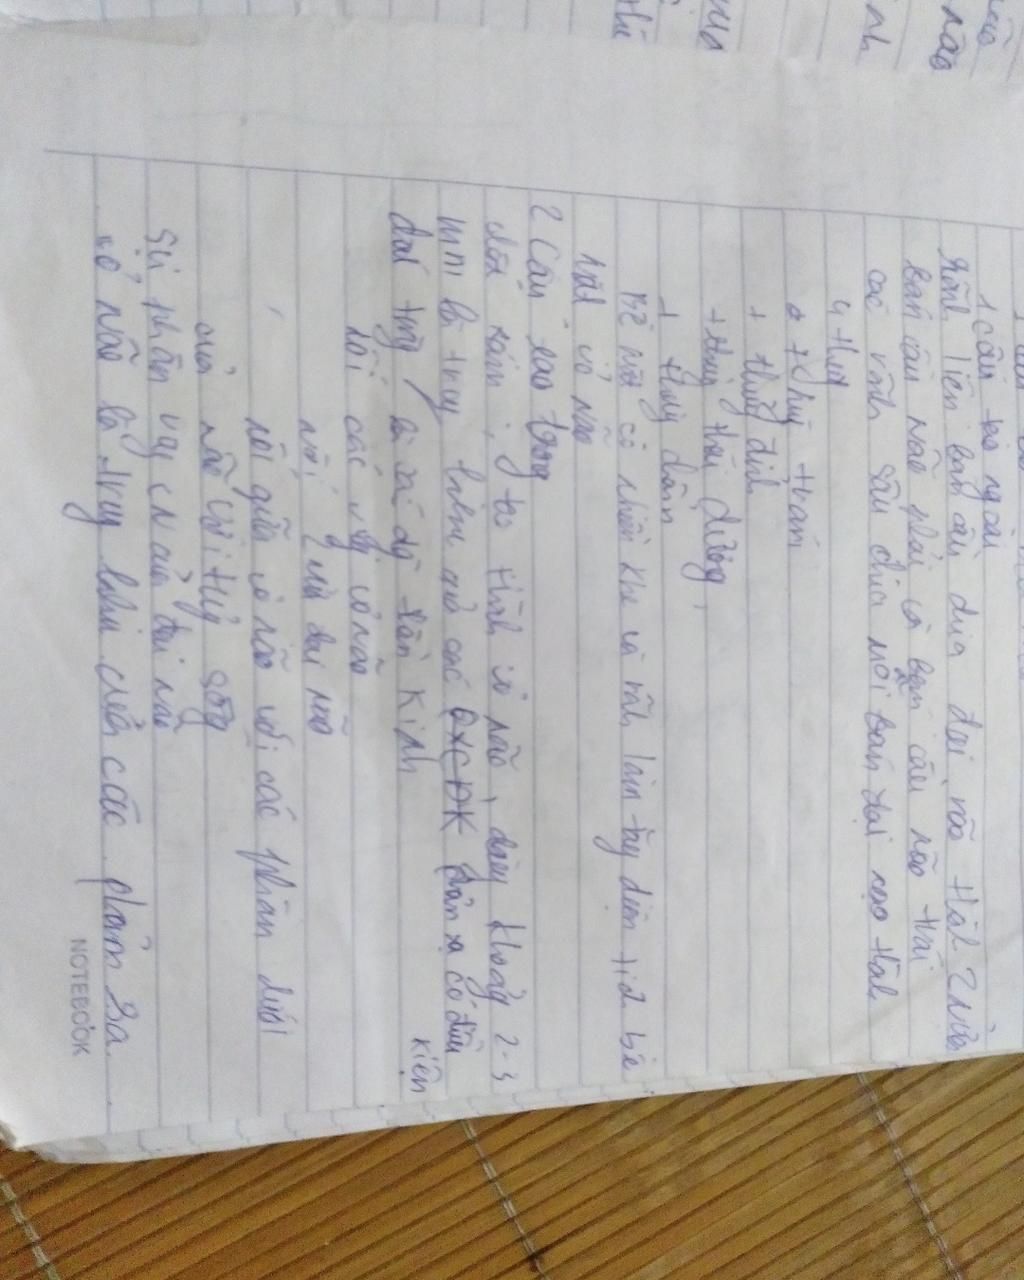 1 cấu tạo ngoài
Rãnh liên bán cầu chia đại não thành 2 nửa
bán cầu não phải và bán cầu não trái
các rãnh sâu chia mỗi bán đại não thành
4 thuỳ
+ thuỳ trán
+ thuỳ đỉnh
+ thuỳ thái dương
+ thuỳ chẩm
Bề mặt có nhiều khe và rãnh làm tăng diện tích bề
mặt vỏ não
2 Cấu tạo trong
chất xám: tạo thành vỏ não, dày khoảng 2-3
mm là trung khu của các PXCĐK phản xạ có điều
kiện
chất trắng là các dây thần kinh
nối các vùng vỏ não
nối 2 nửa đại não
nối giữa vỏ não với các phần dưới
của não với tuỷ sống
Sự phân vùng CN của đại não
vỏ não là trung khu của các phản xạ.
NOTEBOOK
não